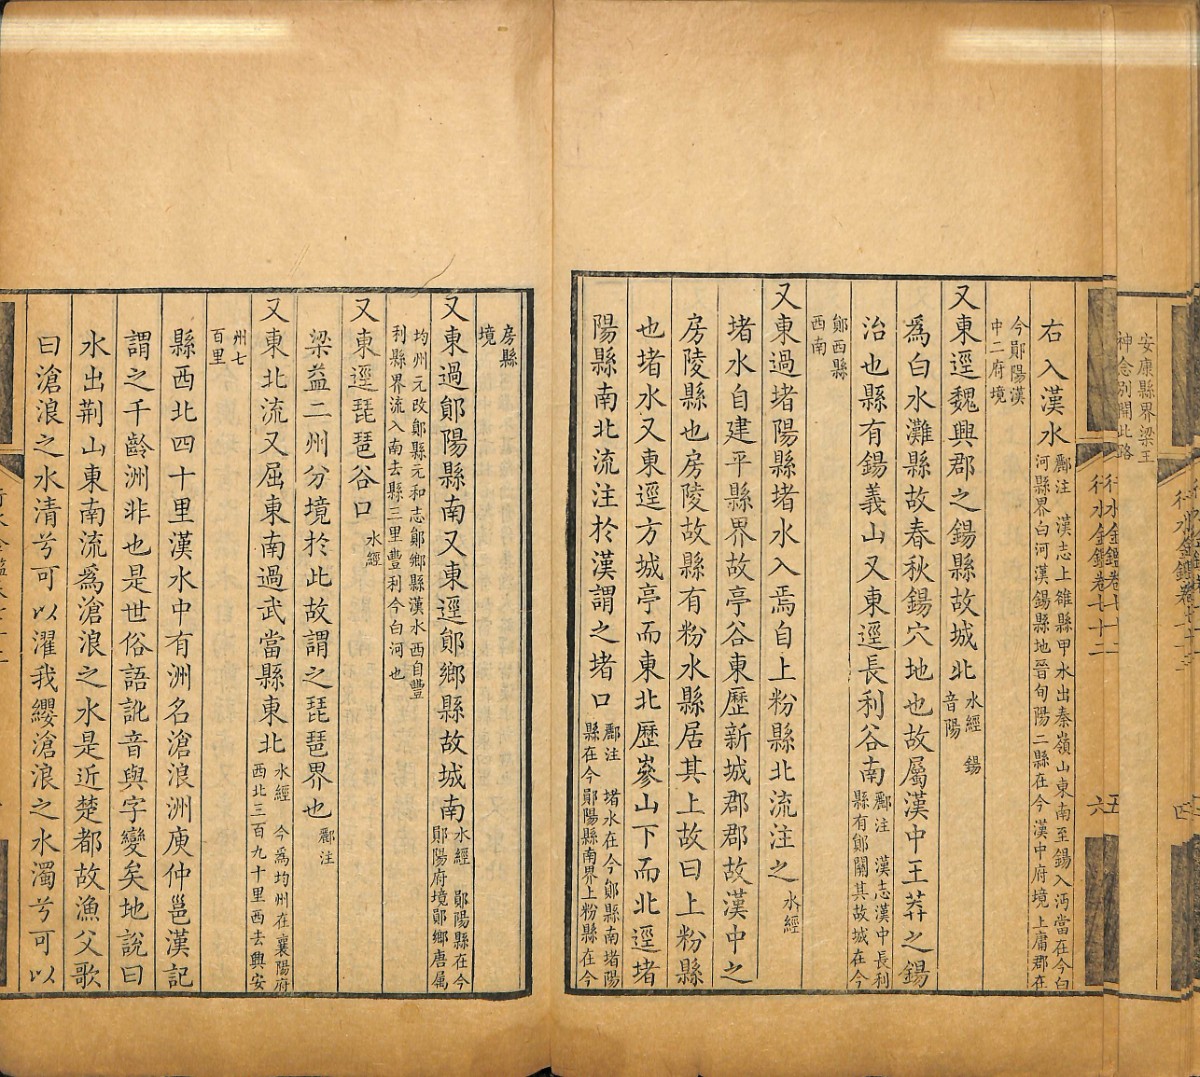 安康縣界梁王
神念別開此路
行水金鑑卷七十二
五
行水金鑑卷七十二
六
右入漢水酈注 漢志上雒縣甲水出秦嶺山東南至鍚入沔當在今白
河縣界白河漢鍚縣地晉旬陽二縣在今漢中府境上庸郡在
今鄖陽漢
中二府境
又東逕魏興郡之鍚縣故城北水經 鍚
音陽
為白水灘縣故春秋鍚穴地也故屬漢中王莽之鍚
治也縣有鍚義山又東逕長利谷南酈注 漢志漢中長利
縣有鄖關其故城在今
鄖西縣
西南
又東過堵陽縣堵水入焉自上粉縣北流注之水經
堵水自建平縣界故亭谷東歷新城郡郡故漢中之
房陵縣也房陵故縣有粉水縣居其上故曰上粉縣
也堵水又東逕方城亭而東北歷嵾山下而北逕堵
陽縣南北流注於漢謂之堵口酈注 堵水在今鄖縣南堵陽
縣在今鄖陽縣南界上粉縣在今
房縣
境
又東過鄖陽縣南又東逕鄖鄉縣故城南水經 鄖陽縣在今
鄖陽府境鄖鄉唐屬
均州元改鄖縣元和志鄖鄉縣漢水西自豐
利縣界流入南去縣三里豐利今白河也
又東逕琵琶谷口水經
梁益二州分境於此故謂之琵琶界也酈注
又東北流又屈東南過武當縣東北水經 今為均州在襄陽府
西北三百九十里西去興安
州七
百里
縣西北四十里漢水中有洲名滄浪洲庾仲邕漢記
謂之千齡洲非也是世俗語訛音與字變矣地說曰
水出荆山東南流爲滄浪之水是近楚都故漁父歌
曰滄浪之水清兮可以濯我纓滄浪之水濁兮可以